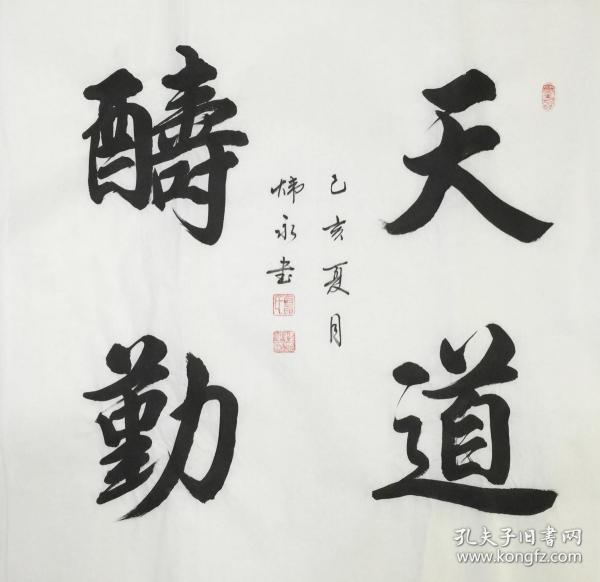 天道
醻勤
己亥夏月
炜永书
孔夫子旧书网
www.kongfz.com